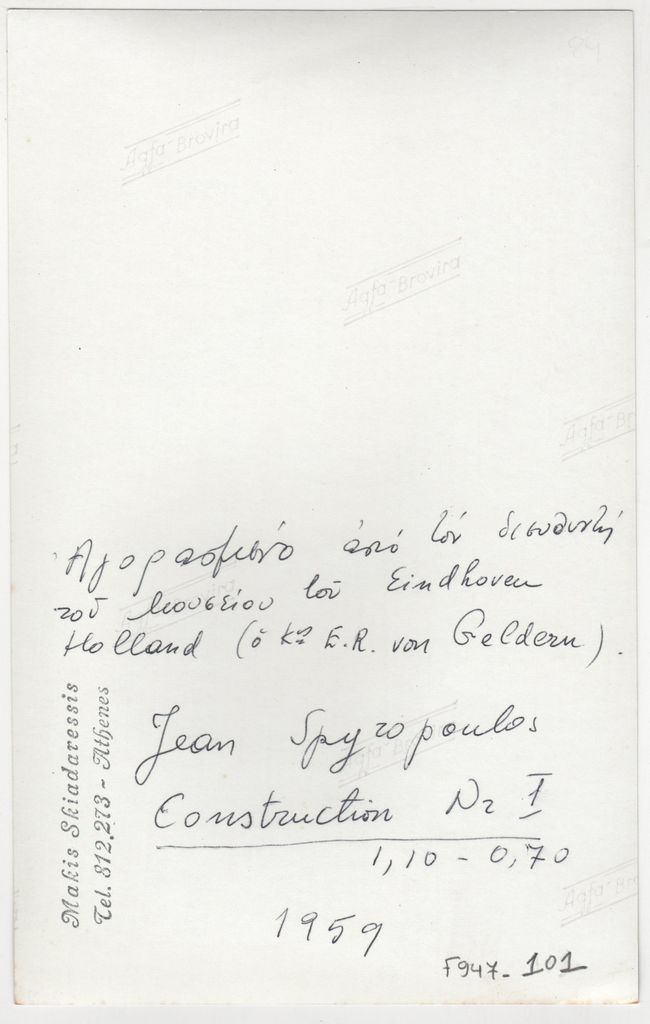 89
Agfa-Brovira
Agfa-Brovira
Agfa-Br
Ἀγορασμένο ἀπό τόν διευθυντή
τοῦ Μουσείου τοῦ Eindhoven
Holland (ὁ κος E.R. von Geldern).
Jean Spyropoulos
Construction Nr I
1,10 - 0,70
1959
F947-101
Makis Skiadaressis
Tel. 812.273 - Athenes
Agfa-Br